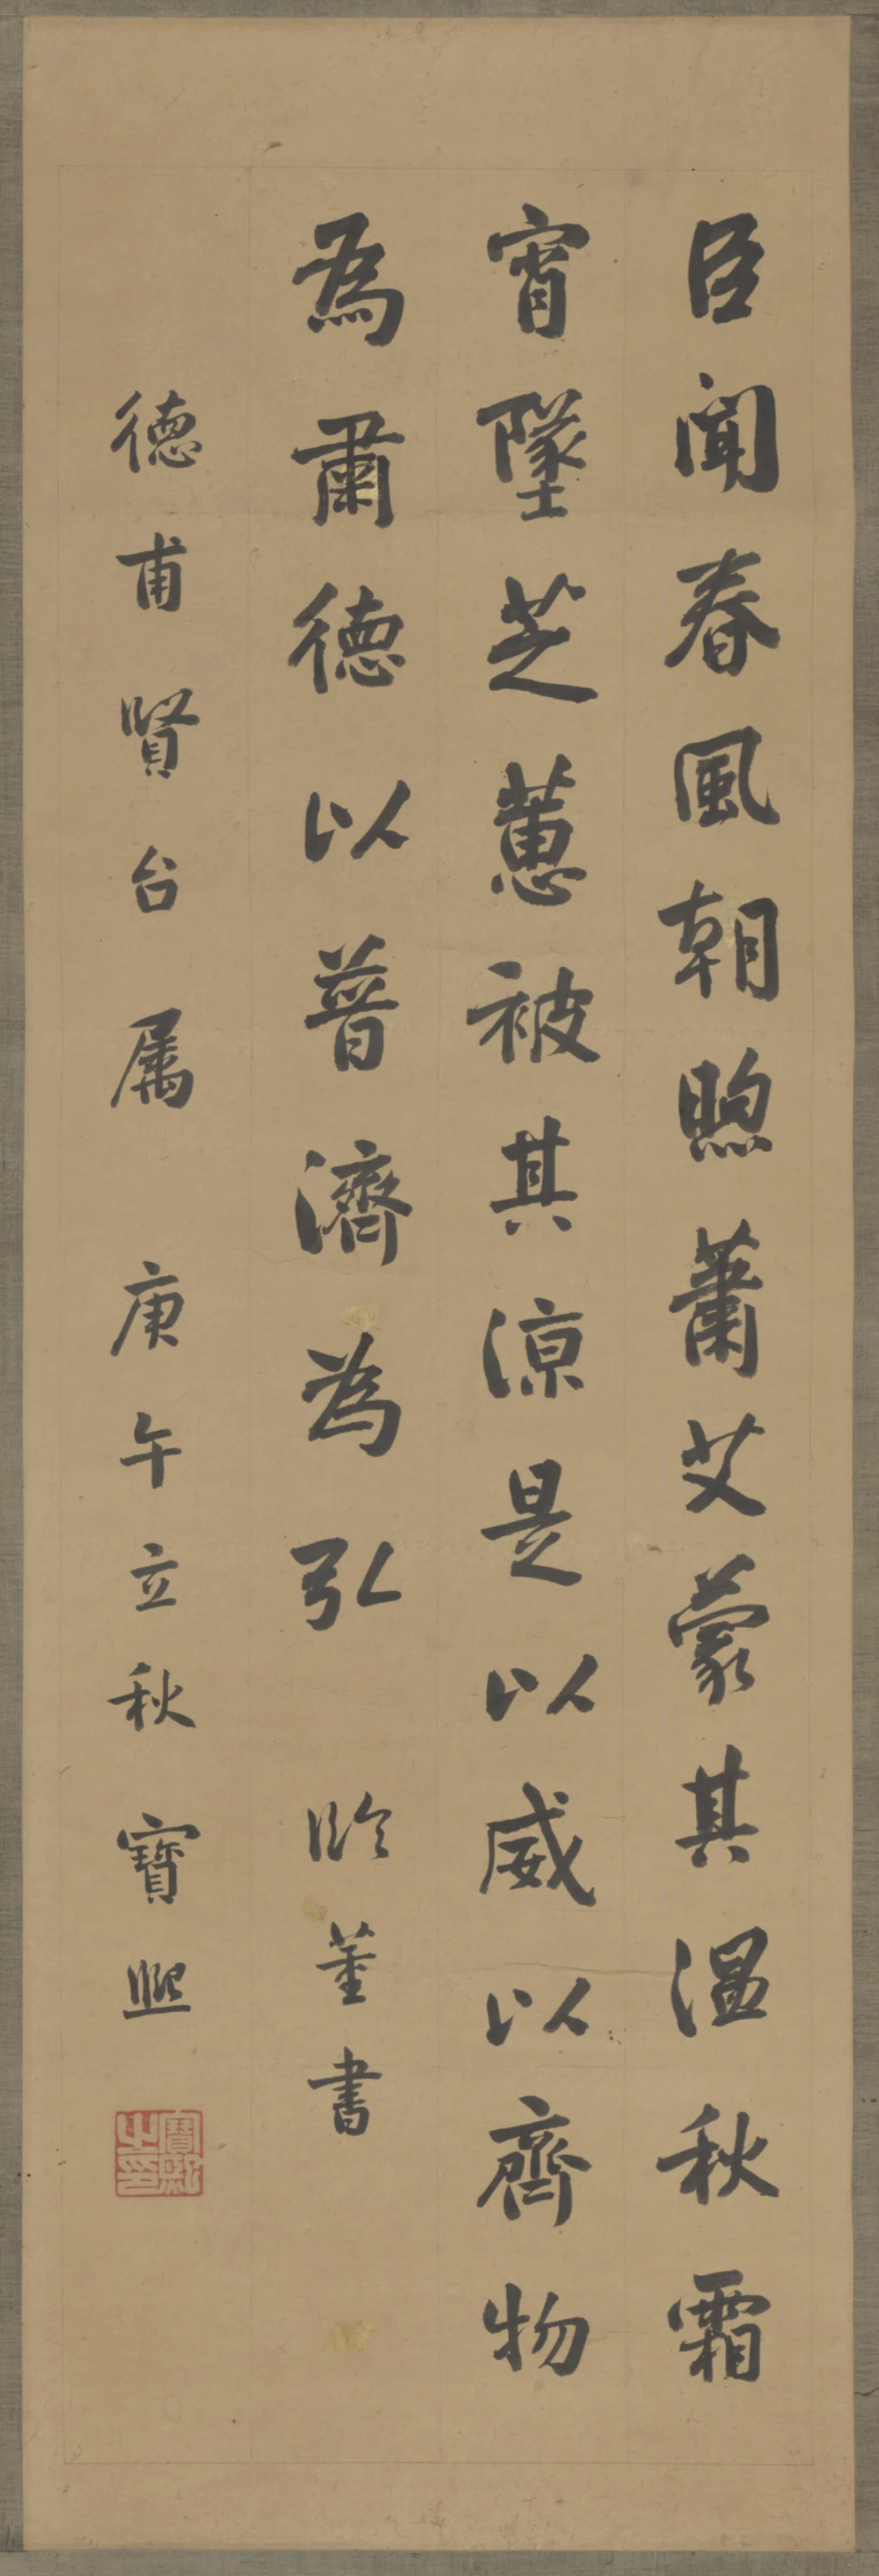 臣聞春風朝煦蕭艾蒙其溫秋霜
宵墜芝蕙被其涼是以威以齊物
為肅德以普濟為弘 臨董書
德甫賢台属 庚午立秋 寶熙
寶熙之印